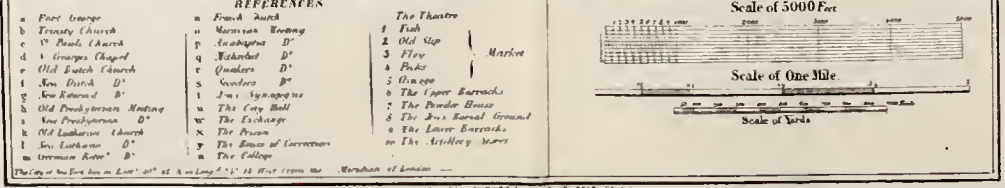 REFERENCES
a Fort George
b Trinity Church
c St Pauls Church
d St Georges Chapel
e Old Dutch Church
f New Dutch Do
g New Reformd Do
h Old Presbyterian Meeting
i New Presbyterian Do
k Old Lutheran Church
l New Lutheran Do
m German Refor Do
n French Church
o Moravian Meeting
p Anabaptist Do
q Methodist Do
r Quakers Do
s Do
t Jews Synagogue
u The City Hall
w The Exchange
x The Prison
y The House of Correction
z The College
The Theatre
1 Fish
2 Old Slip
3 Fley
4 Pecks
5 Oswego
Market
6 The Upper Barracks
7 The Powder House
8 The Jews Burial Ground
9 The Lower Barracks
10 The Artillery
The City of New York lies in Latd of West from the Meridian of London
Scale of 5000 Feet
1 2 3 4 5 6 7 8 9 1000 2000 3000 4000 5000
Scale of One Mile.
Scale of Yards